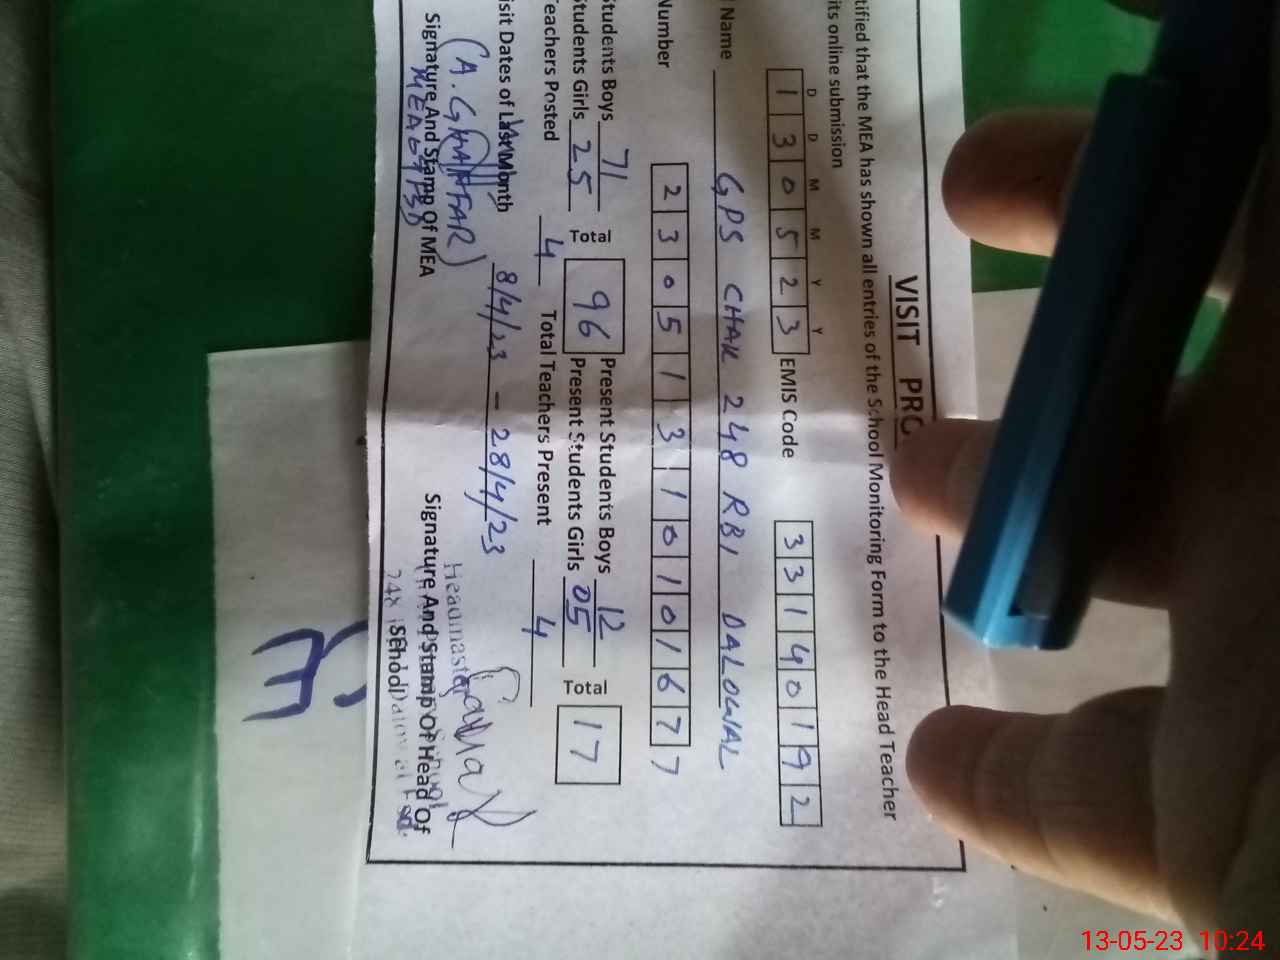 VISIT PRO
tified that the MEA has shown all entries of the School Monitoring Form to the Head Teacher
its online submission
D D M M Y Y
1 3 0 5 2 3 EMIS Code 3 3 1 4 0 1 9 2
Name GPS CHAK 248 RBI DALOWAL
Number 2 3 0 5 1 3 1 0 1 0 1 6 7 7
Students Boys 71 Total 96 Present Students Boys 12 Total 17
Students Girls 25 Present Students Girls 05
Teachers Posted 4 Total Teachers Present 4
isit Dates of Last Month 8/4/23 - 28/4/23
(A. GHAFFAR)
Headmaster
Signature And Stamp Of MEA Signature And Stamp Of Head Of
School
13-05-23 10:24